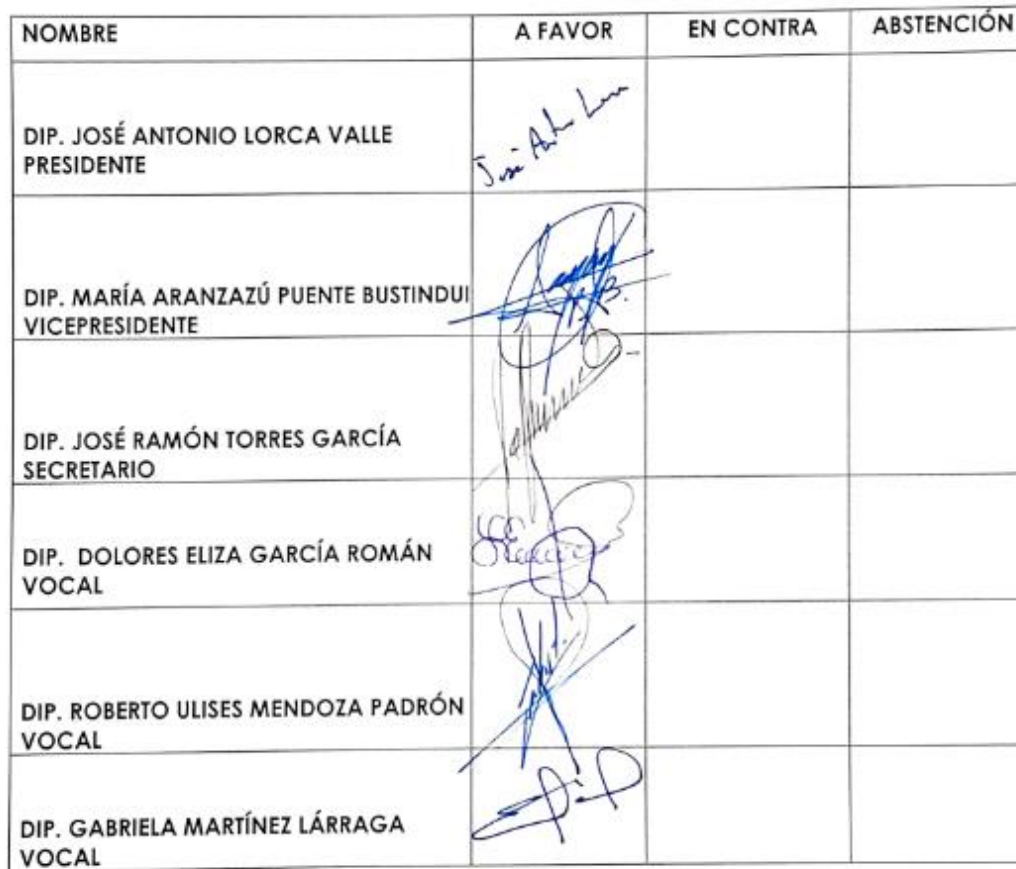 NOMBRE A FAVOR EN CONTRA ABSTENCIÓN
DIP. JOSÉ ANTONIO LORCA VALLE
PRESIDENTE
José Anto Lorca
DIP. MARÍA ARANZAZÚ PUENTE BUSTINDUI
VICEPRESIDENTE
DIP. JOSÉ RAMÓN TORRES GARCÍA
SECRETARIO
DIP. DOLORES ELIZA GARCÍA ROMÁN
VOCAL
DIP. ROBERTO ULISES MENDOZA PADRÓN
VOCAL
DIP. GABRIELA MARTÍNEZ LÁRRAGA
VOCAL